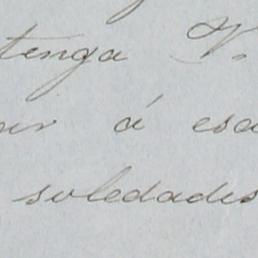 tenga V.
á esa
soledades